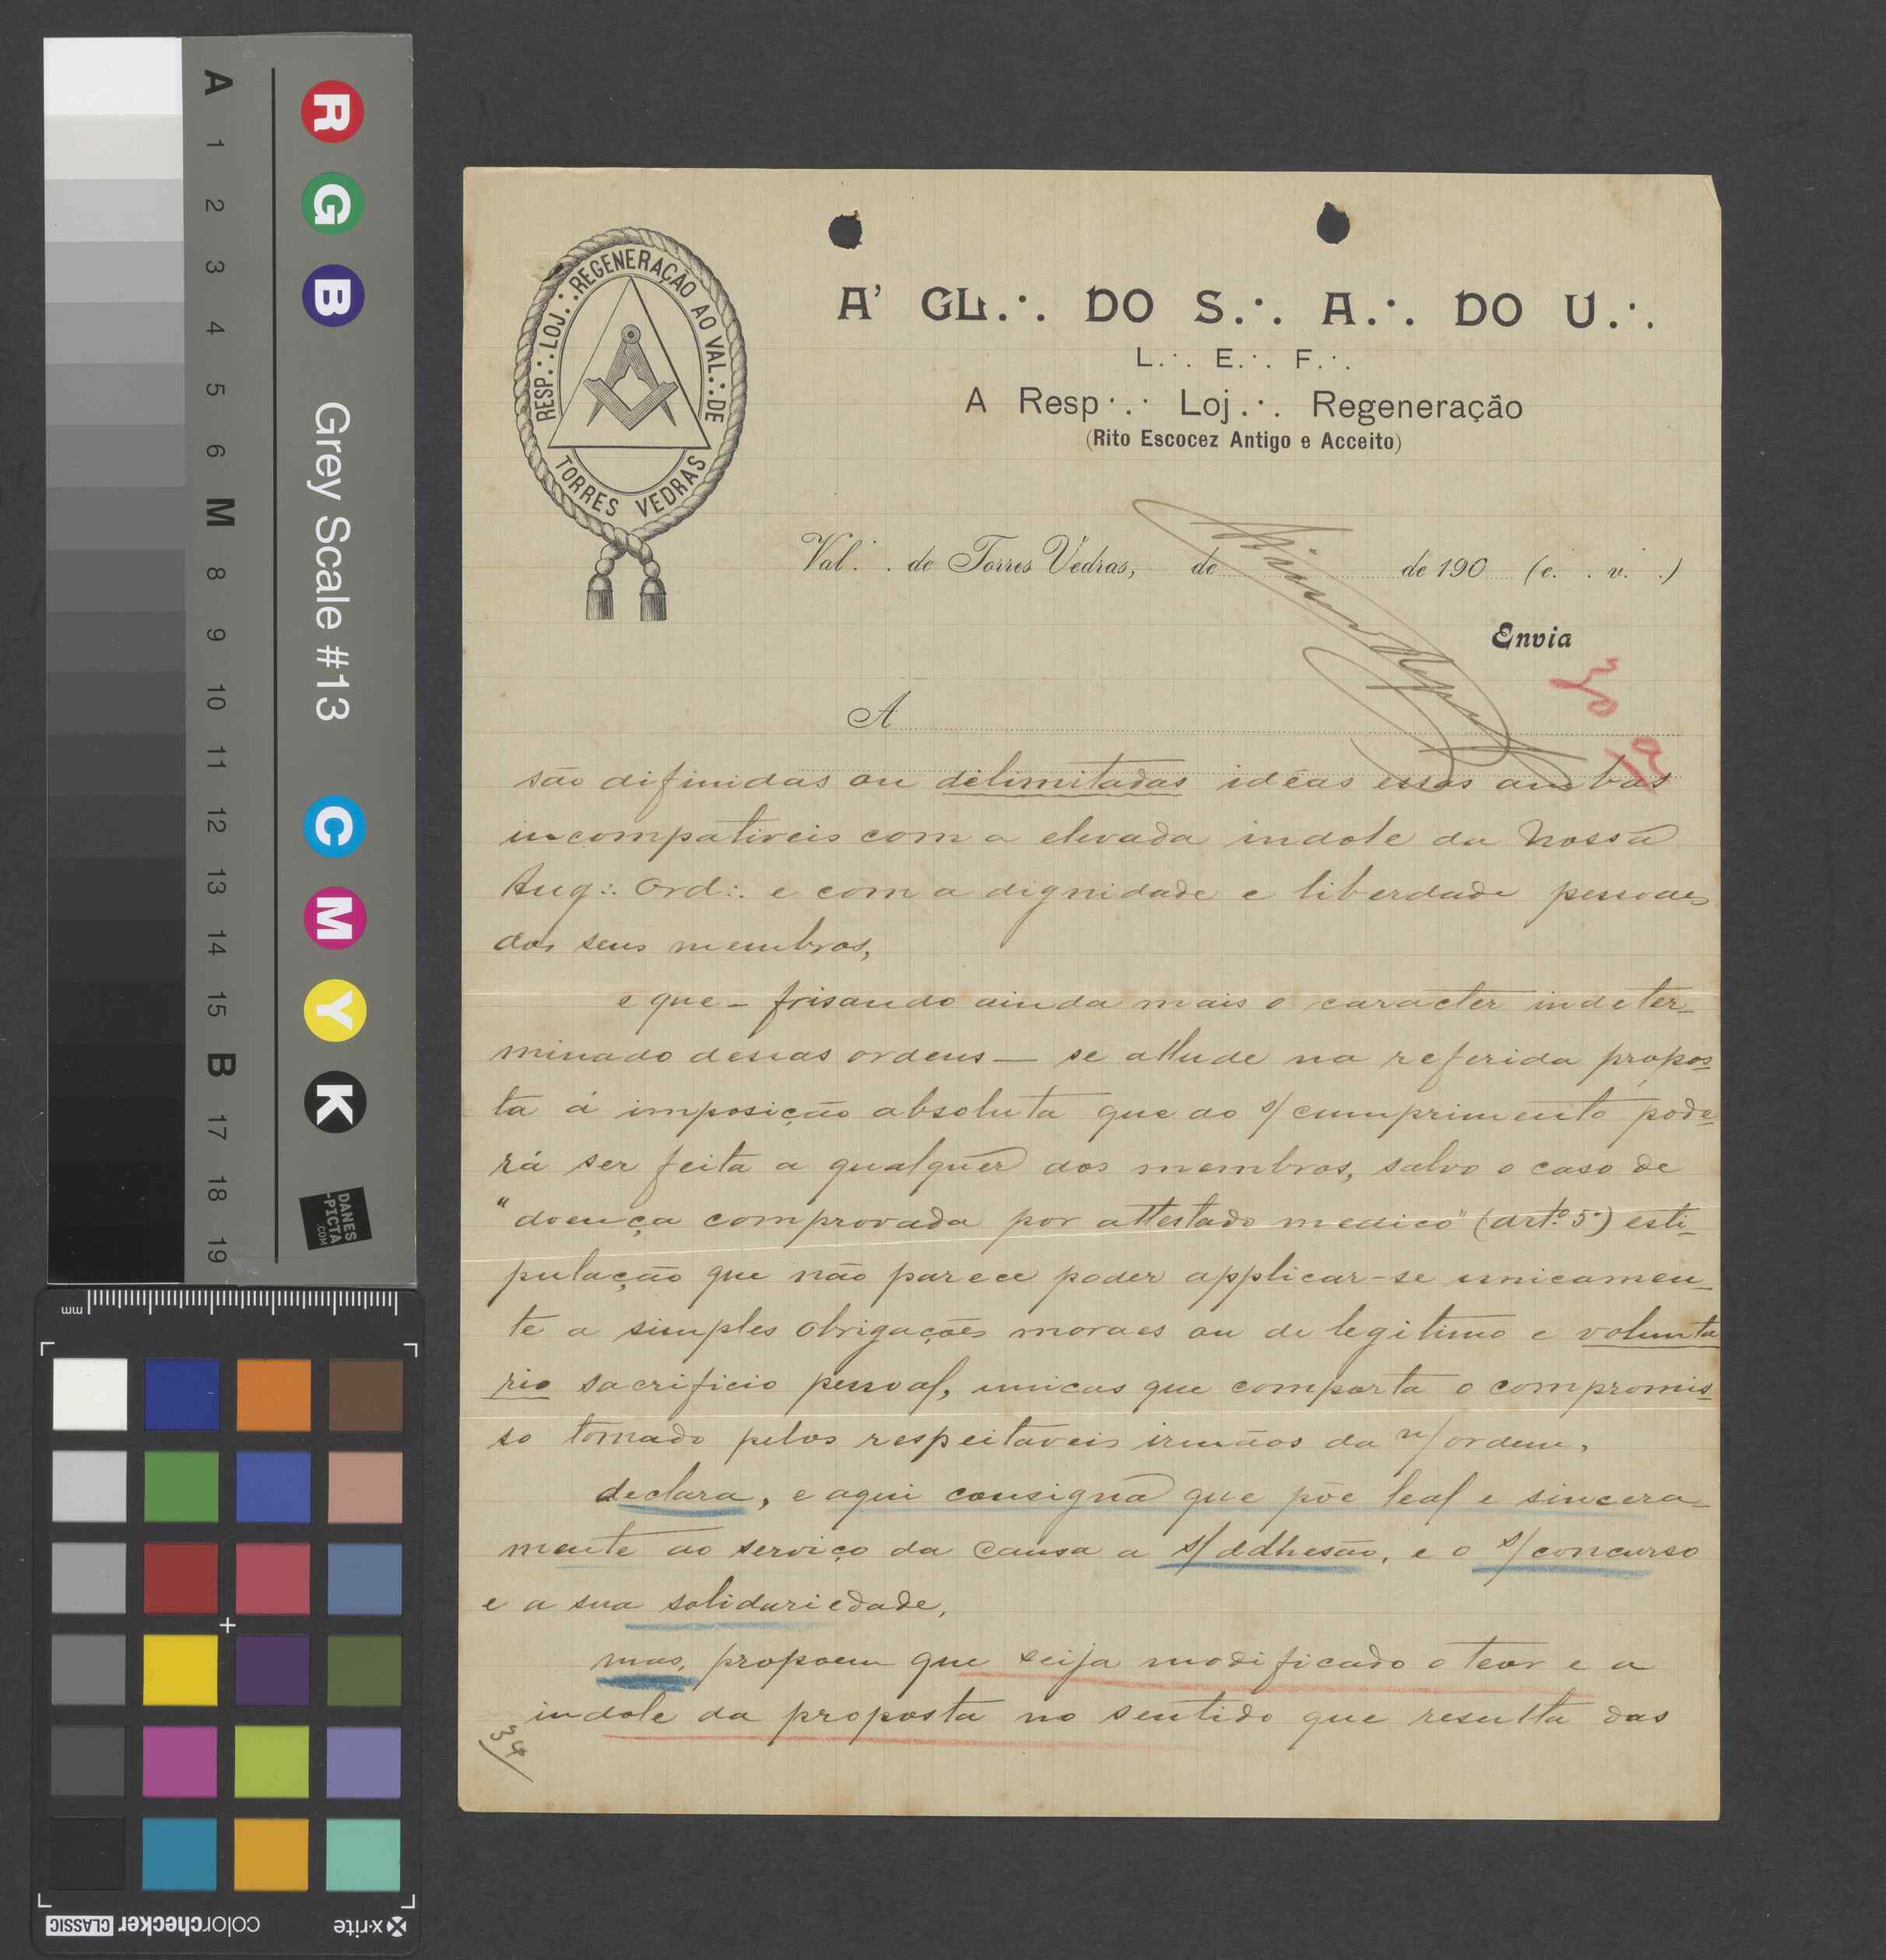 A' GL.·. DO S.·. A.·. DO U.·.
L.·. E.·. F.·.
A Resp.·. Loj.·. Regeneração
(Rito Escocez Antigo e Acceito)
RESP.·. LOJ.·. REGENERAÇÃO AO VAL.·. DE
TORRES VEDRAS
Val.·. de Torres Vedras, de de 190 (e.·. v.·.)
Envia
A
são difinidas ou delimitadas idéas essas ambas
incompativeis com a elevada indole da Nossa
Aug.·. Ord.·. e com a dignidade e liberdade pessoaes
dos seus membros,
e que – frisando ainda mais o caracter indeter-
minado dessas ordens — se allude na referida propos-
ta á imposição absoluta que ao s/ cumprimento pode-
rá ser feita a qualquer dos membros, salvo o caso de
"doença comprovada por attestado medico" (artº 5º) esti-
pulação que não parece poder applicar-se unicamen-
te a simples obrigações moraes ou de legitimo e volunta
rio sacrificio pessoal, unicas que comporta o compromis-
so tomado pelos respeitaveis irmãos da n/ ordem,
declara, e aqui consigna que põe leal e sincera-
mente ao serviço da Causa a s/ adhesão, e o s/ concurso
e a sua solidariedade,
mas, propoem que seija modificado o teor e a
indole da proposta no sentido que resulta das
34
A
1
2
3
4
5
6
M
8
9
10
11
12
13
14
15
B
17
18
19
R
G
B
Grey Scale #13
C
M
Y
K
DANES
-PICTA
.COM
mm
x·rite
colorchecker CLASSIC